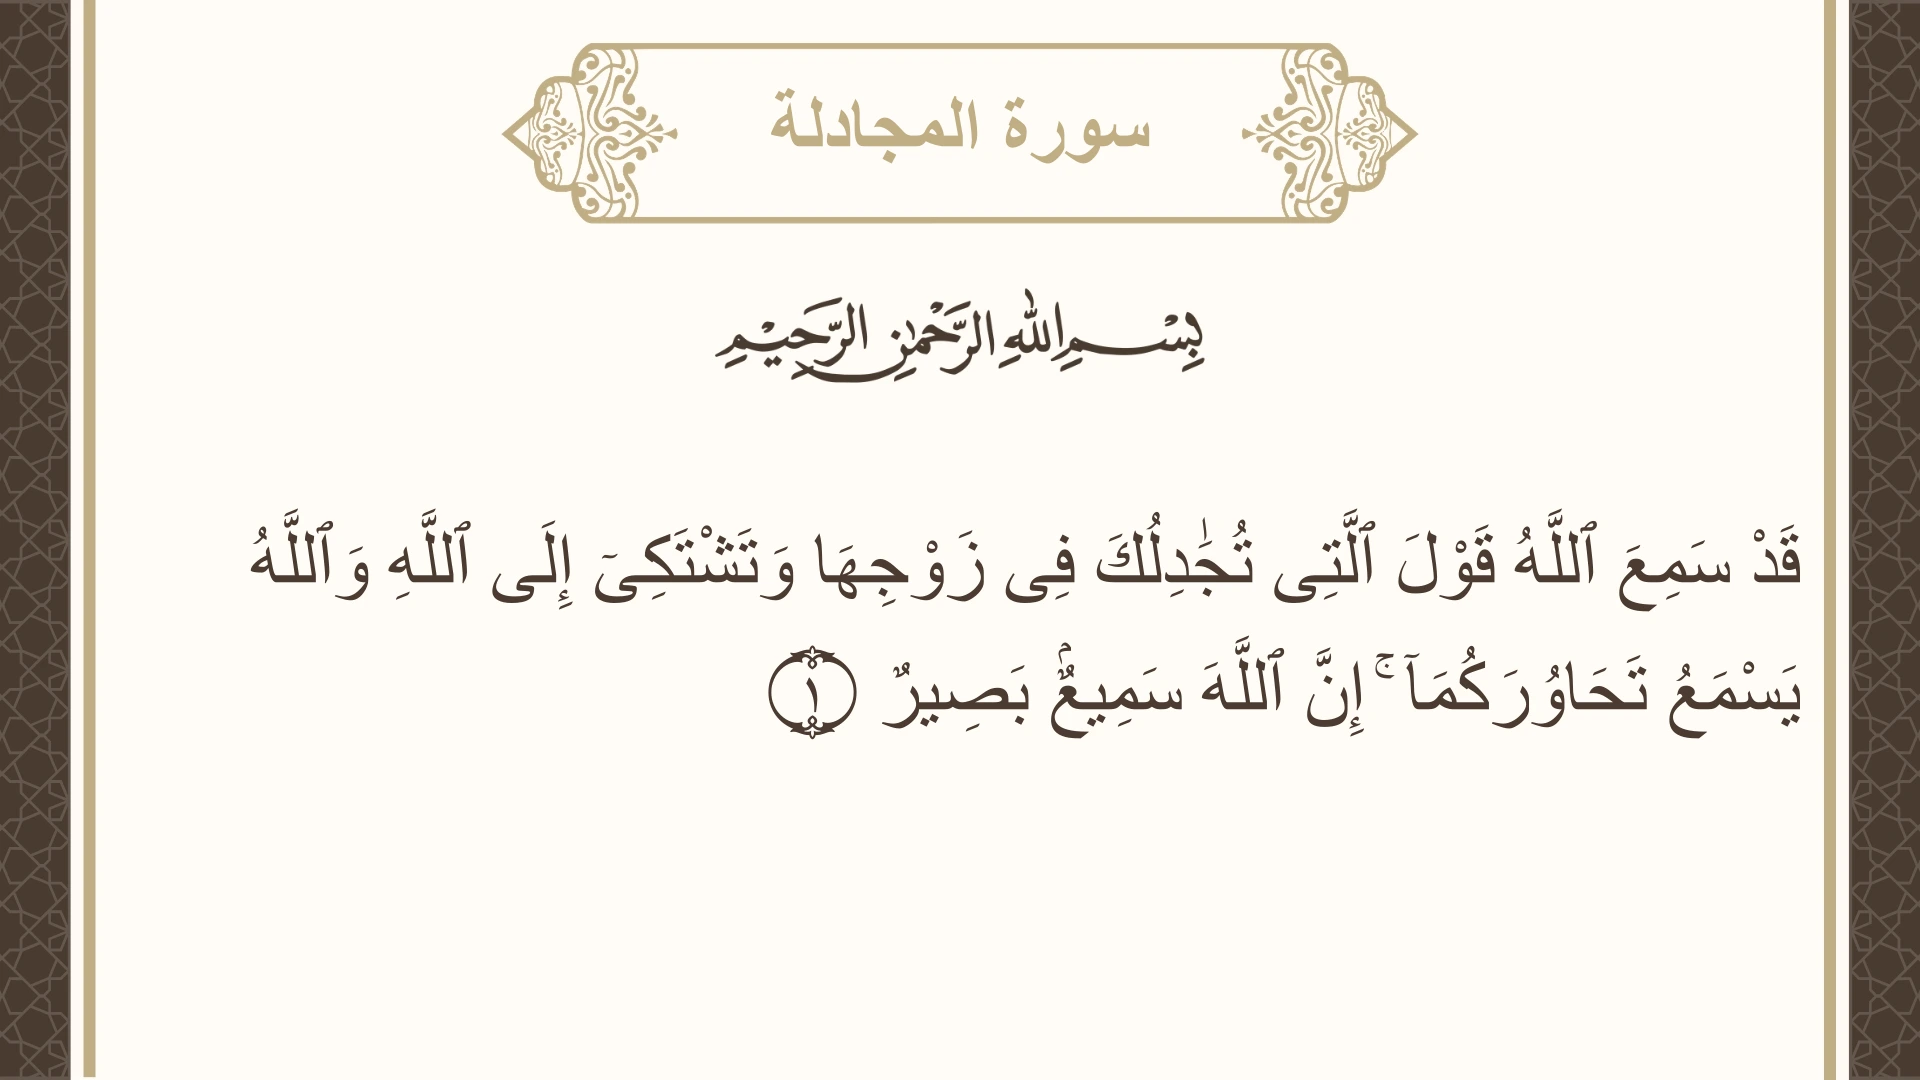 سورة المجادلة
بِسْمِ اللهِ الرَّحْمٰنِ الرَّحِيْمِ
قَدْ سَمِعَ ٱللَّهُ قَوْلَ ٱلَّتِى تُجَٰدِلُكَ فِى زَوْجِهَا وَتَشْتَكِىٓ إِلَى ٱللَّهِ وَٱللَّهُ
يَسْمَعُ تَحَاوُرَكُمَآ ۚ إِنَّ ٱللَّهَ سَمِيعٌۢ بَصِيرٌ ١